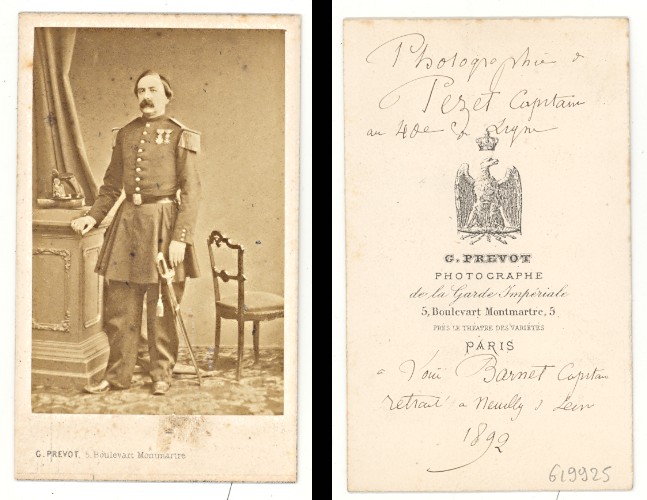 G. PREVOT, 5, Boulevart Montmartre
Photographie d
Pezet Capitaine
au 4de de Ligne
G. PREVOT
PHOTOGRAPHE
de la Garde Impériale
5, Boulevart Montmartre, 5
PRÈS LE THÉATRE DES VARIÉTÉS
PARIS
a Barnet Capitain
retraité a Neuilly s
1892
619925